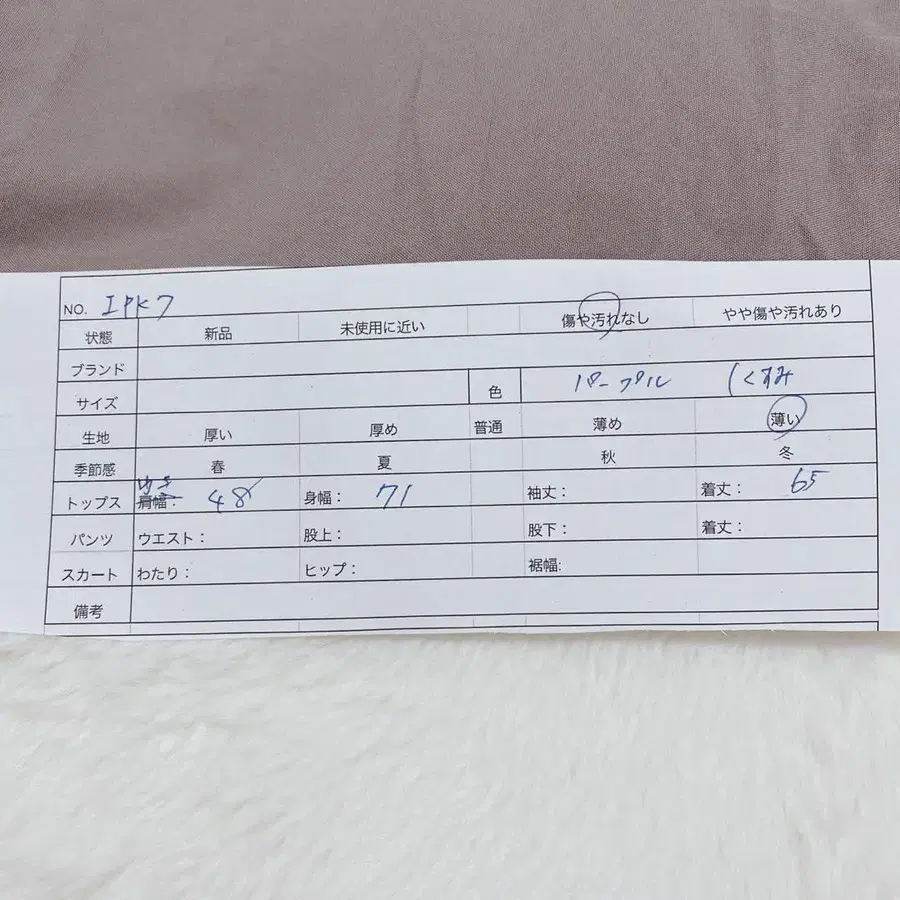 NO. IPK7
状態 新品 未使用に近い 傷や汚れなし やや傷や汚れあり
ブランド
サイズ 色 パープル (くすみ
生地 厚い 厚め 普通 薄め 薄い
季節感 春 夏 秋 冬
ゆき
トップス 肩幅: 48 身幅: 71 袖丈: 着丈: 65
パンツ ウエスト: 股上: 股下: 着丈:
スカート わたり: ヒップ: 裾幅:
備考